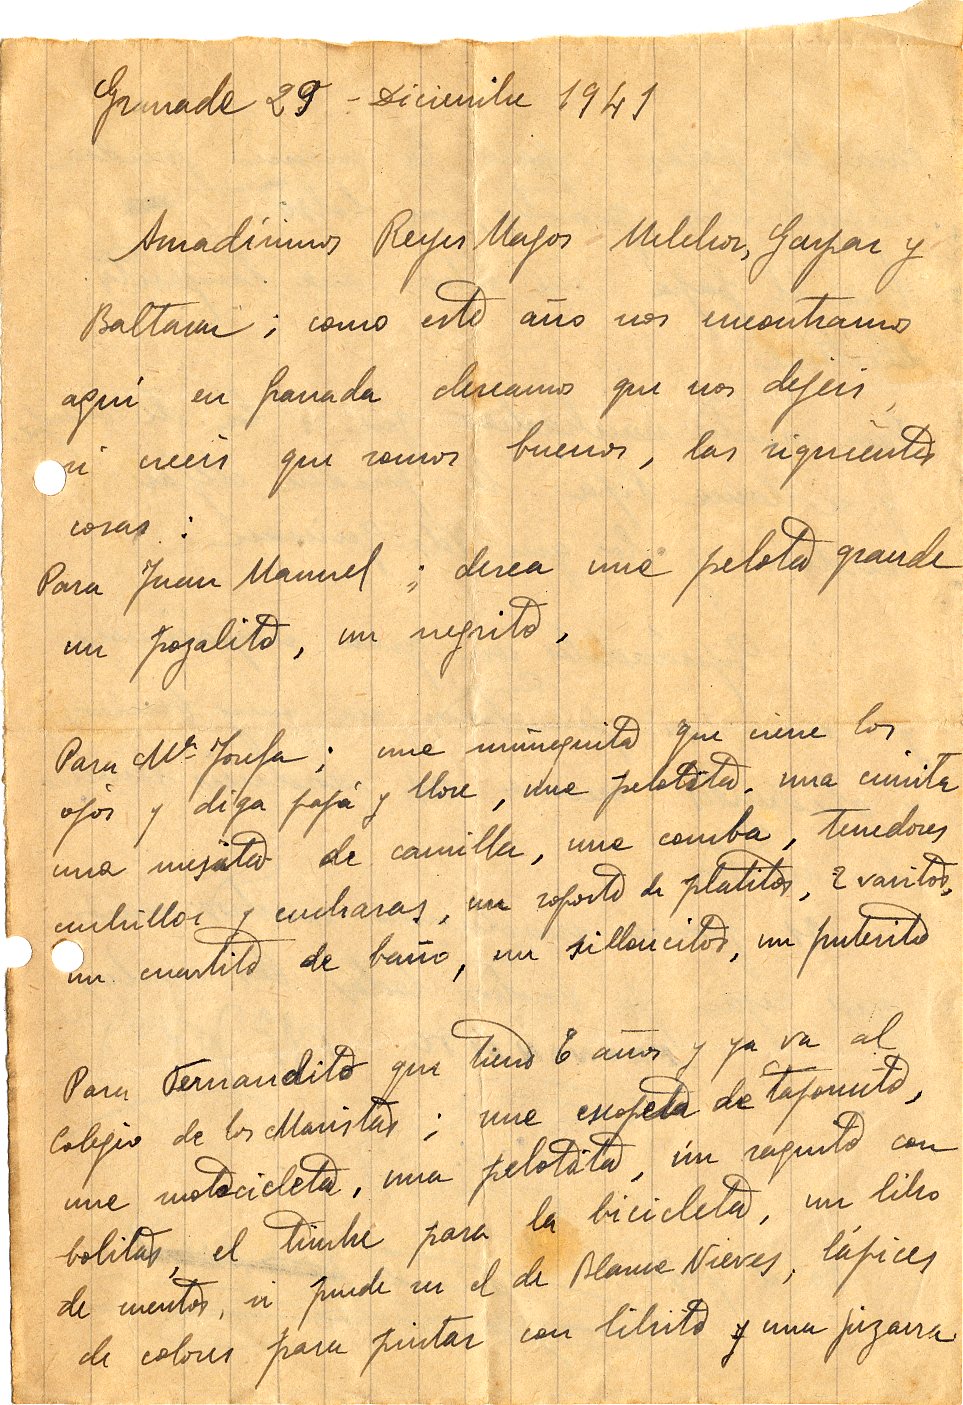 Granada 29 - Diciembre 1941
Amadísimos Reyes Magos Melchor, Gaspar y
Baltasar; como este año nos encontramos
aquí en Granada deseamos que nos dejeis,
si creeis que somos buenos, las siguientes
cosas:
Para Juan Manuel; desea una pelota grande
un pozalito, un negrito,
Para Mª Josefa; una muñequita que cierre los
ojos y diga papá y llore, una pelotita, una cunita
una mesita de camilla, una comba, tenedores
cuchillos y cucharas, un soporte de platitos, 2 vasitos,
un cuartito de baño, un silloncito, un puterito
Para Fernandito que tiene 6 años y ya va al
Colegio de los Maristas; una escopeta de taponito,
una motocicleta, una pelotita, un saquito con
bolitas, el timbre para la bicicleta, un libro
de cuentos, si puede ser el de Blanca Nieves, lápices
de colores para pintar con librito y una pizarra